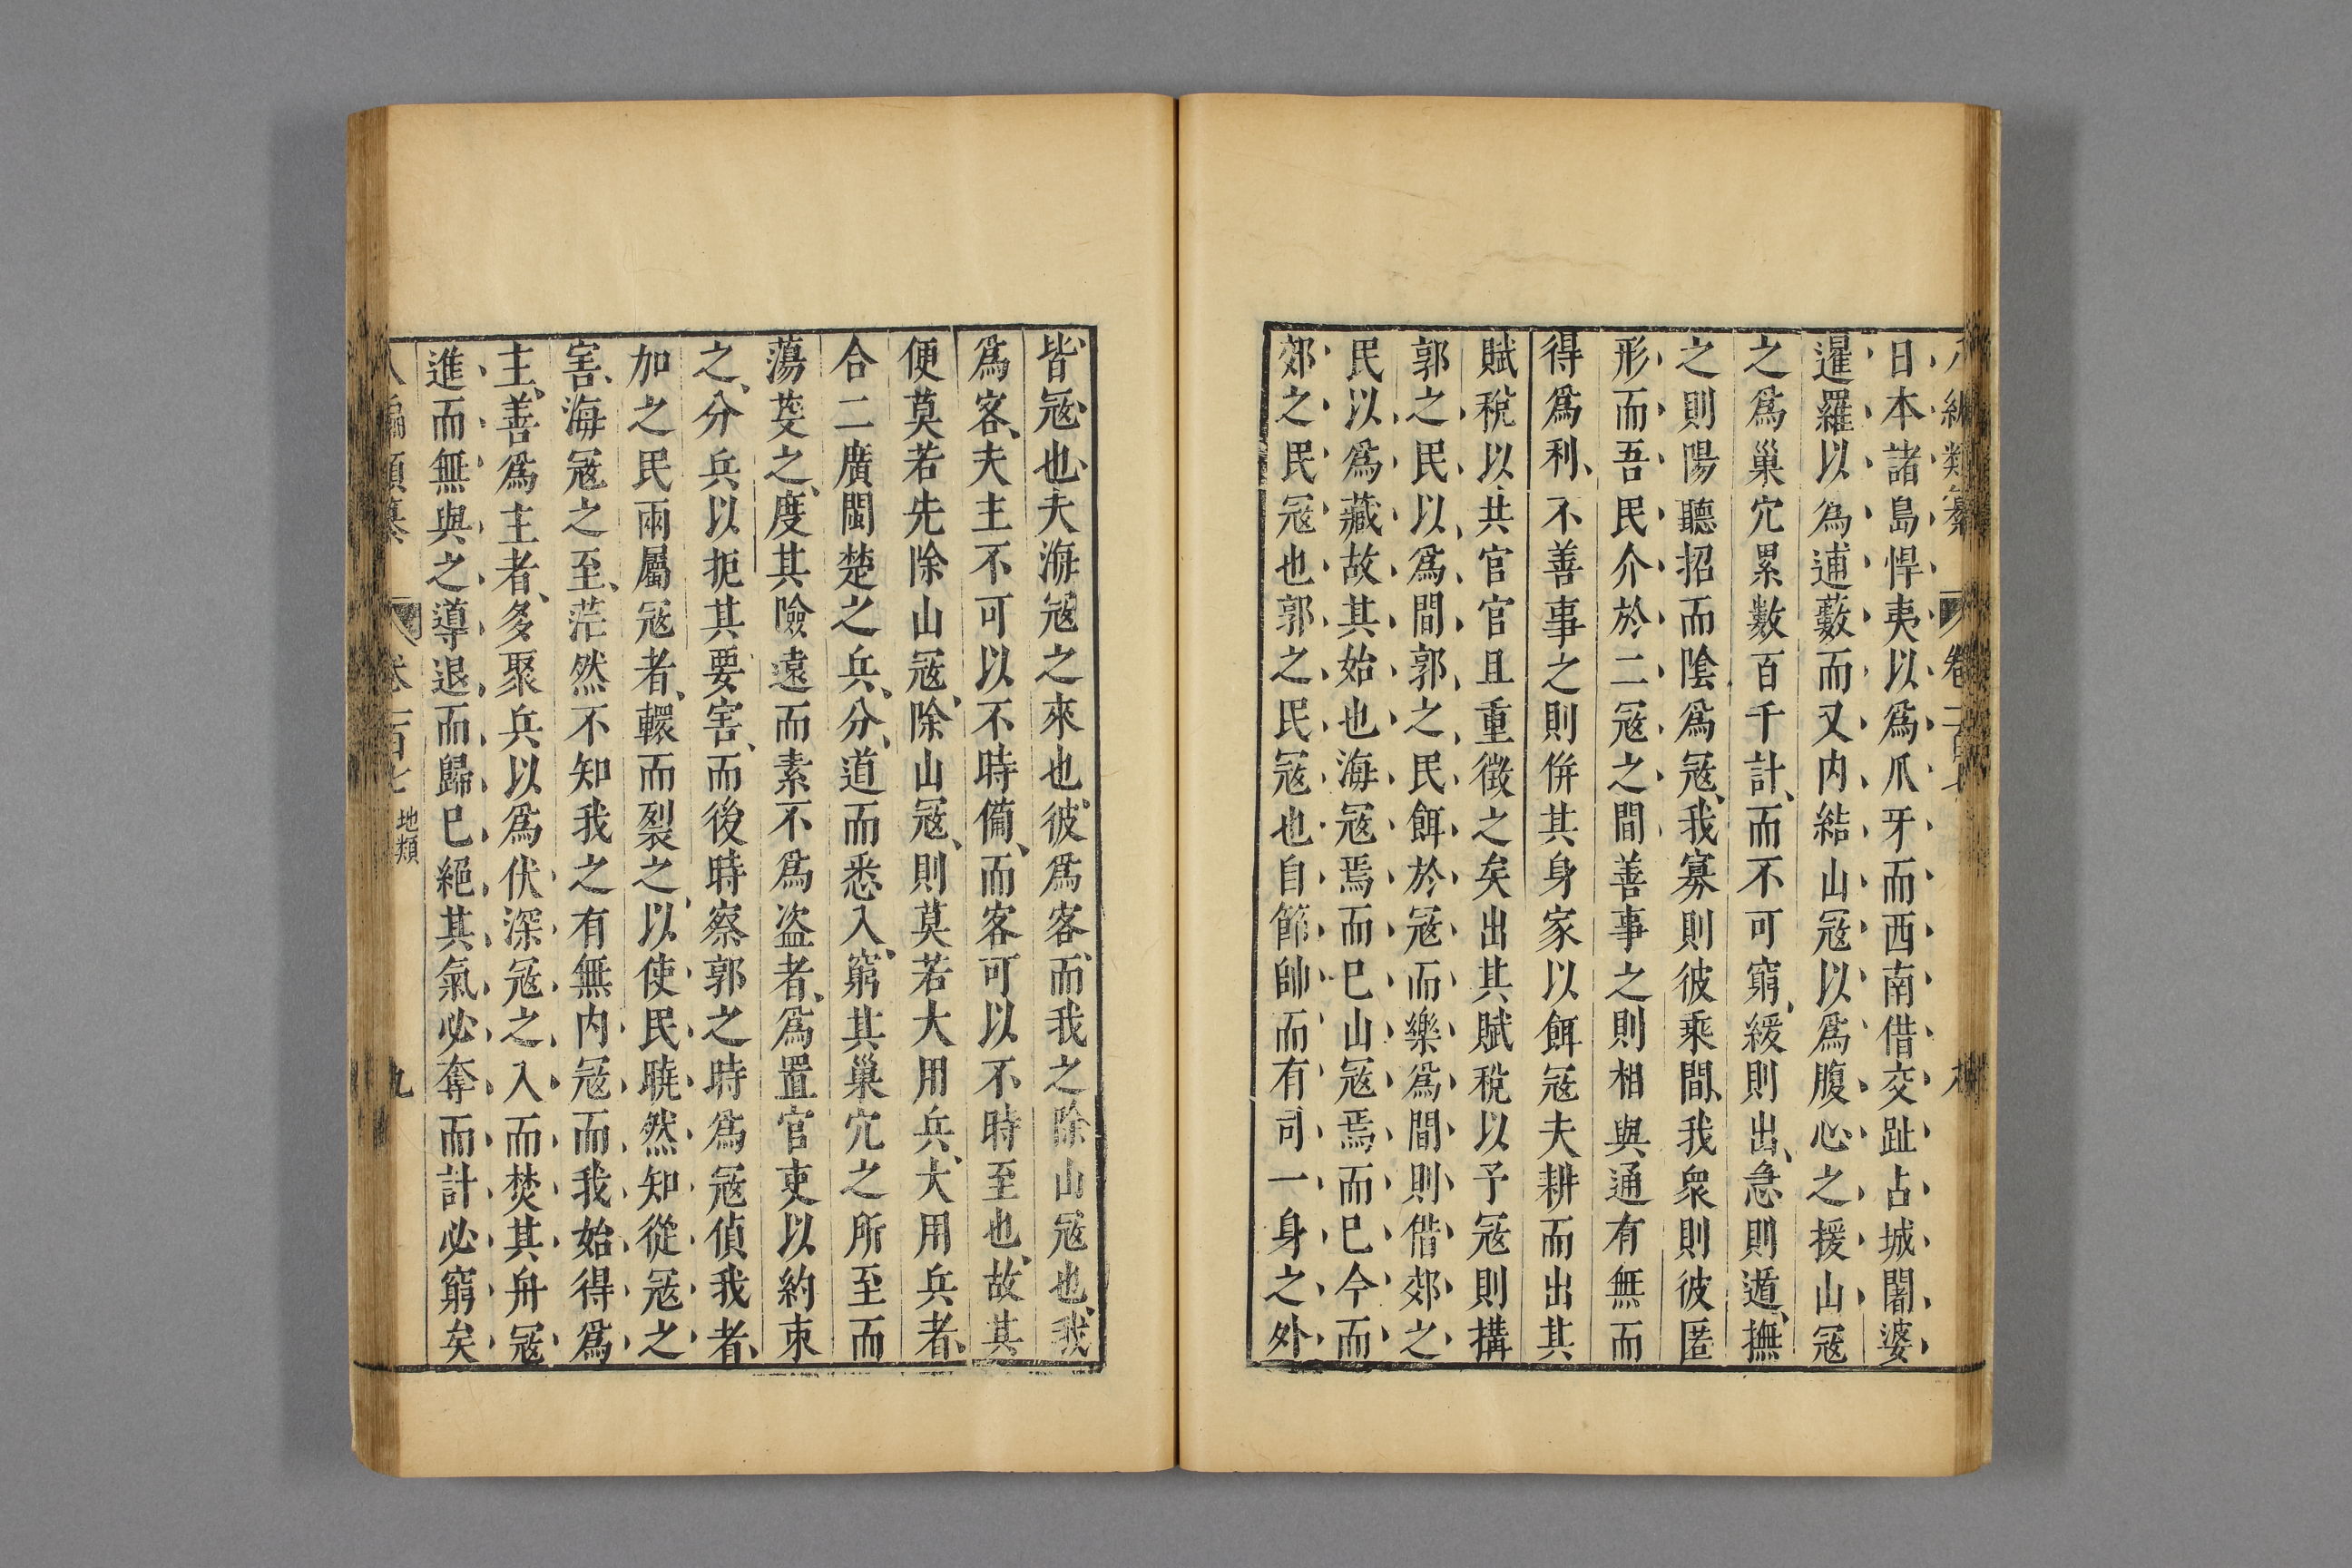 日本諸島悍夷以爲爪牙而西南借交趾占城闍婆
暹羅以為逋藪而又内結山冦以爲腹心之援山冦
之爲巢穴累數百千計而不可窮緩則出急則遁撫
之則陽聽招而陰爲冦我寡則彼乘間我衆則彼匿
形而吾民介於二冦之間善事之則相與通有無而
得爲利不善事之則併其身家以餌冦夫耕而出其
賦稅以共官官且重徵之矣出其賦稅以予冦則搆
郭之民以爲間郭之民餌於冦而樂爲間則偕郊之
民以爲藏故其始也海冦焉而已山冦焉而已今而
郊之民冦也郭之民冦也自節帥而有司一身之外
皆冦也夫海冦之來也彼爲客而我之除山冦也我
爲客夫主不可以不時備而客可以不時至也故其
便莫若先除山冦除山冦則莫若大用兵大用兵者
合二廣閩楚之兵分道而悉入窮其巢穴之所至而
蕩芟之度其險遠而素不爲盗者爲置官吏以約束
之分兵以扼其要害而後時察郭之時爲冦偵我者
加之民兩屬冦者轘而裂之以使民曉然知從冦之
害海冦之至茫然不知我之有無内冦而我始得爲
主善爲主者多聚兵以爲伏深冦之入而焚其舟冦
進而無與之導退而歸已絕其氣必奪而計必窮矣
八編類纂 卷一百七 地類 九